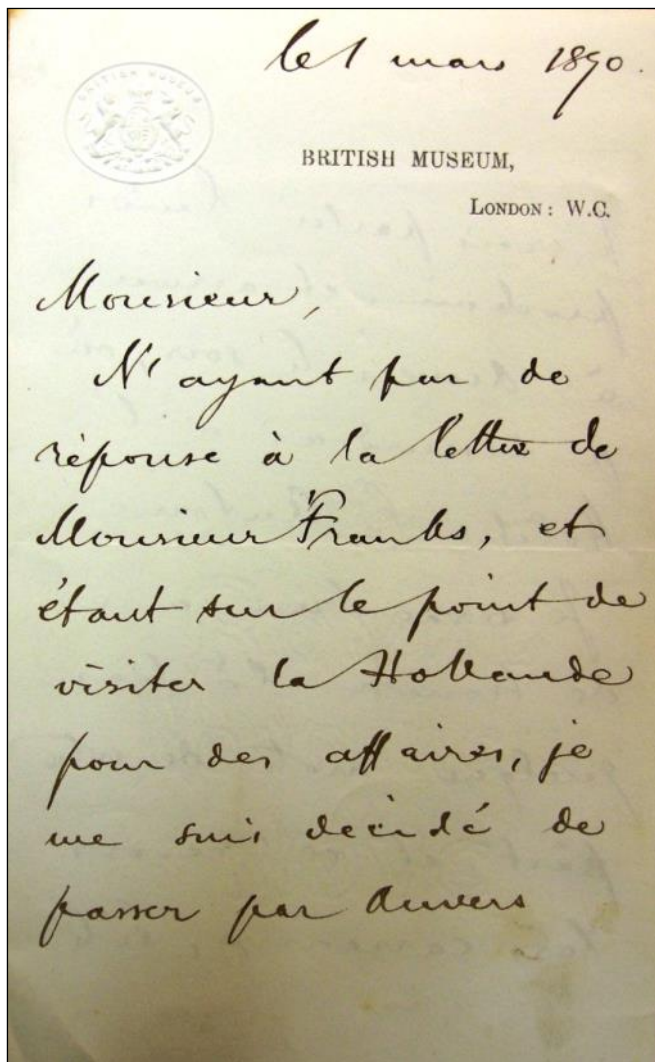 le 1 mars 1890.
BRITISH MUSEUM
BRITISH MUSEUM,
LONDON: W.C.
Monsieur,
N'ayant pas de
réponse à la lettre de
Monsieur Franks, et
étant sur le point de
visiter la Hollande
pour des affaires, je
me suis décidé de
passer par Anvers